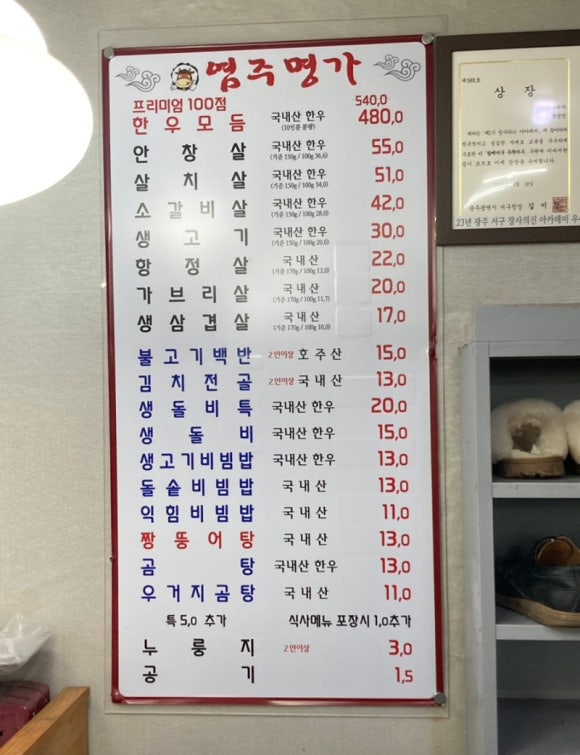 염주명가
프리미엄 100점 540,0
한우모듬 국내산 한우 480,0
(10인분 분량)
안창살 국내산 한우 55,0
(기준 150g / 100g 36,6)
살치살 국내산 한우 51,0
(기준 150g / 100g 34,0)
소갈비살 국내산 한우 42,0
(기준 150g / 100g 28,0)
생고기 국내산 한우 30,0
(기준 150g / 100g 20,0)
항정살 국내산 22,0
(기준 170g / 100g 13,0)
가브리살 국내산 20,0
(기준 170g / 100g 11,7)
생삼겹살 국내산 17,0
(기준 170g / 100g 10,0)
불고기백반 2인이상 호주산 15,0
김치전골 2인이상 국내산 13,0
생돌비특 국내산 한우 20,0
생돌비 국내산 한우 15,0
생고기비빔밥 국내산 한우 13,0
돌솥비빔밥 국내산 13,0
익힘비빔밥 국내산 11,0
짱뚱어탕 국내산 13,0
곰탕 국내산 한우 13,0
우거지곰탕 국내산 11,0
특 5,0 추가 식사메뉴 포장시 1,0추가
누룽지 2인이상 3,0
공기 1,5
상장
23년 광주 서구 장사의신 아카데미 우